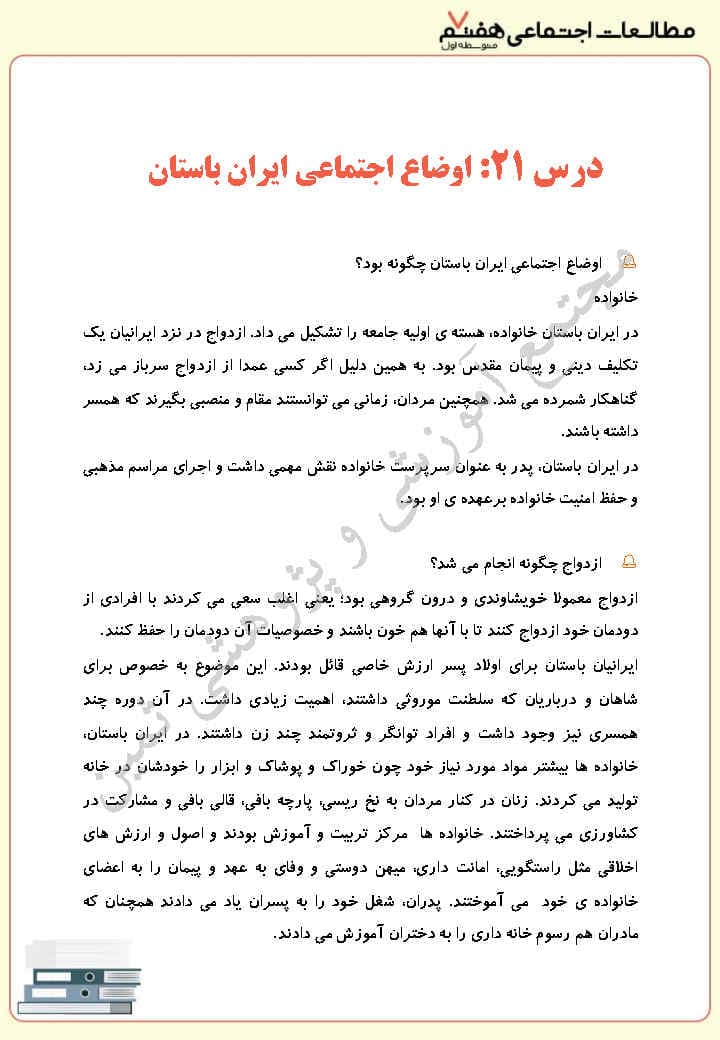 مطالعات اجتماعی هفتم ۷
متوسطه اول
درس ۲۱: اوضاع اجتماعی ایران باستان
اوضاع اجتماعی ایران باستان چگونه بود؟
خانواده
در ایران باستان خانواده، هسته ی اولیه جامعه را تشکیل می داد. ازدواج در نزد ایرانیان یک
تکلیف دینی و پیمان مقدس بود. به همین دلیل اگر کسی عمدا از ازدواج سرباز می زد،
گناهکار شمرده می شد. همچنین مردان، زمانی می توانستند مقام و منصبی بگیرند که همسر
داشته باشند.
در ایران باستان، پدر به عنوان سرپرست خانواده نقش مهمی داشت و اجرای مراسم مذهبی
و حفظ امنیت خانواده برعهده ی او بود.
ازدواج چگونه انجام می شد؟
ازدواج معمولا خویشاوندی و درون گروهی بود؛ یعنی اغلب سعی می کردند با افرادی از
دودمان خود ازدواج کنند تا با آنها هم خون باشند و خصوصیات آن دودمان را حفظ کنند.
ایرانیان باستان برای اولاد پسر ارزش خاصی قائل بودند. این موضوع به خصوص برای
شاهان و درباریان که سلطنت موروثی داشتند، اهمیت زیادی داشت. در آن دوره چند
همسری نیز وجود داشت و افراد توانگر و ثروتمند چند زن داشتند. در ایران باستان،
خانواده ها بیشتر مواد مورد نیاز خود چون خوراک و پوشاک و ابزار را خودشان در خانه
تولید می کردند. زنان در کنار مردان به نخ ریسی، پارچه بافی، قالی بافی و مشارکت در
کشاورزی می پرداختند. خانواده ها مرکز تربیت و آموزش بودند و اصول و ارزش های
اخلاقی مثل راستگویی، امانت داری، میهن دوستی و وفای به عهد و پیمان را به اعضای
خانواده ی خود می آموختند. پدران، شغل خود را به پسران یاد می دادند همچنان که
مادران هم رسوم خانه داری را به دختران آموزش می دادند.
مجتمع آموزشی و پژوهشی ثمین